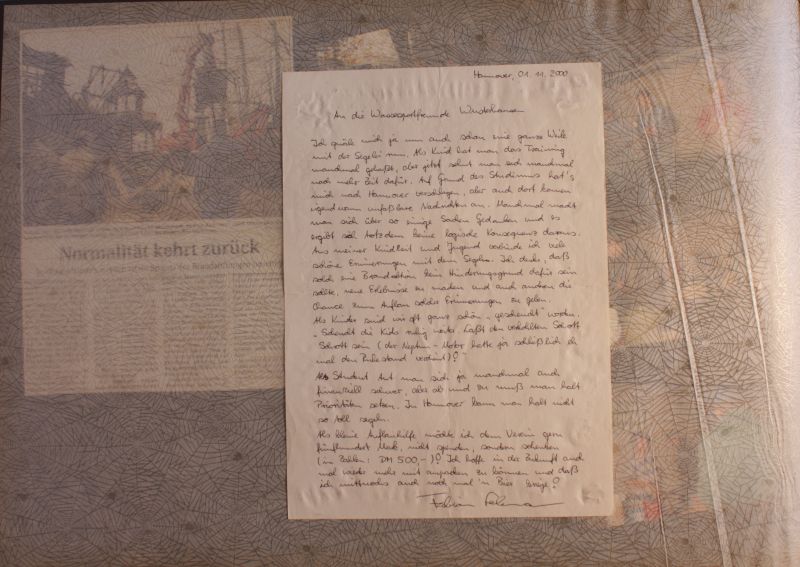 Normalität kehrt zurück
Hannover, 01.11.2000
An die Wassersportfreunde
Ich quäle mich ja nun auch schon eine ganze Weile
mit der Segelei rum. Als Kind hat man das Training
manchmal gehaßt, aber jetzt sehnt man sich manchmal
nach mehr Zeit dafür. Auf Grund des Studiums hat's
mich nach Hannover verschlagen, aber auch dort kamen
irgendwann unfaßbare Nachrichten an. Manchmal macht
man sich über so einige Sachen Gedanken und es
ergibt sich trotzdem keine logische Konsequenz daraus.
Aus meiner Kindheit und Jugend verbinde ich viele
schöne Erinnerungen mit dem Segeln. Ich denke, daß
solch eine Brandaktion kein Hinderungsgrund dafür sein
sollte, neue Erlebnisse zu machen und auch anderen die
Chance zum Aufbau solcher Erinnerungen zu geben.
Als Kinder sind wir oft ganz schön „gescheucht" worden.
"Scheucht die Kids ruhig weiter. Laßt den verkohlten Schrott
Schrott sein (der Neptun-Motor hatte ja schließlich eh
mal den Ruhestand verdient)!"
Als Student tut man sich ja manchmal auch
finanziell schwer, aber ab und zu muß man halt
Prioritäten setzen. In Hannover kann man halt nicht
so toll segeln.
Als kleine Aufbauhilfe möchte ich dem Verein gern
fünfhundert Mark, nicht spenden, sondern schenken
(in Zahlen: DM 500,-)! Ich hoffe in der Zukunft auch
mal wieder mehr mit anpacken zu können und daß
ich mittwochs auch noch mal 'n Bier kriege!
Fabian